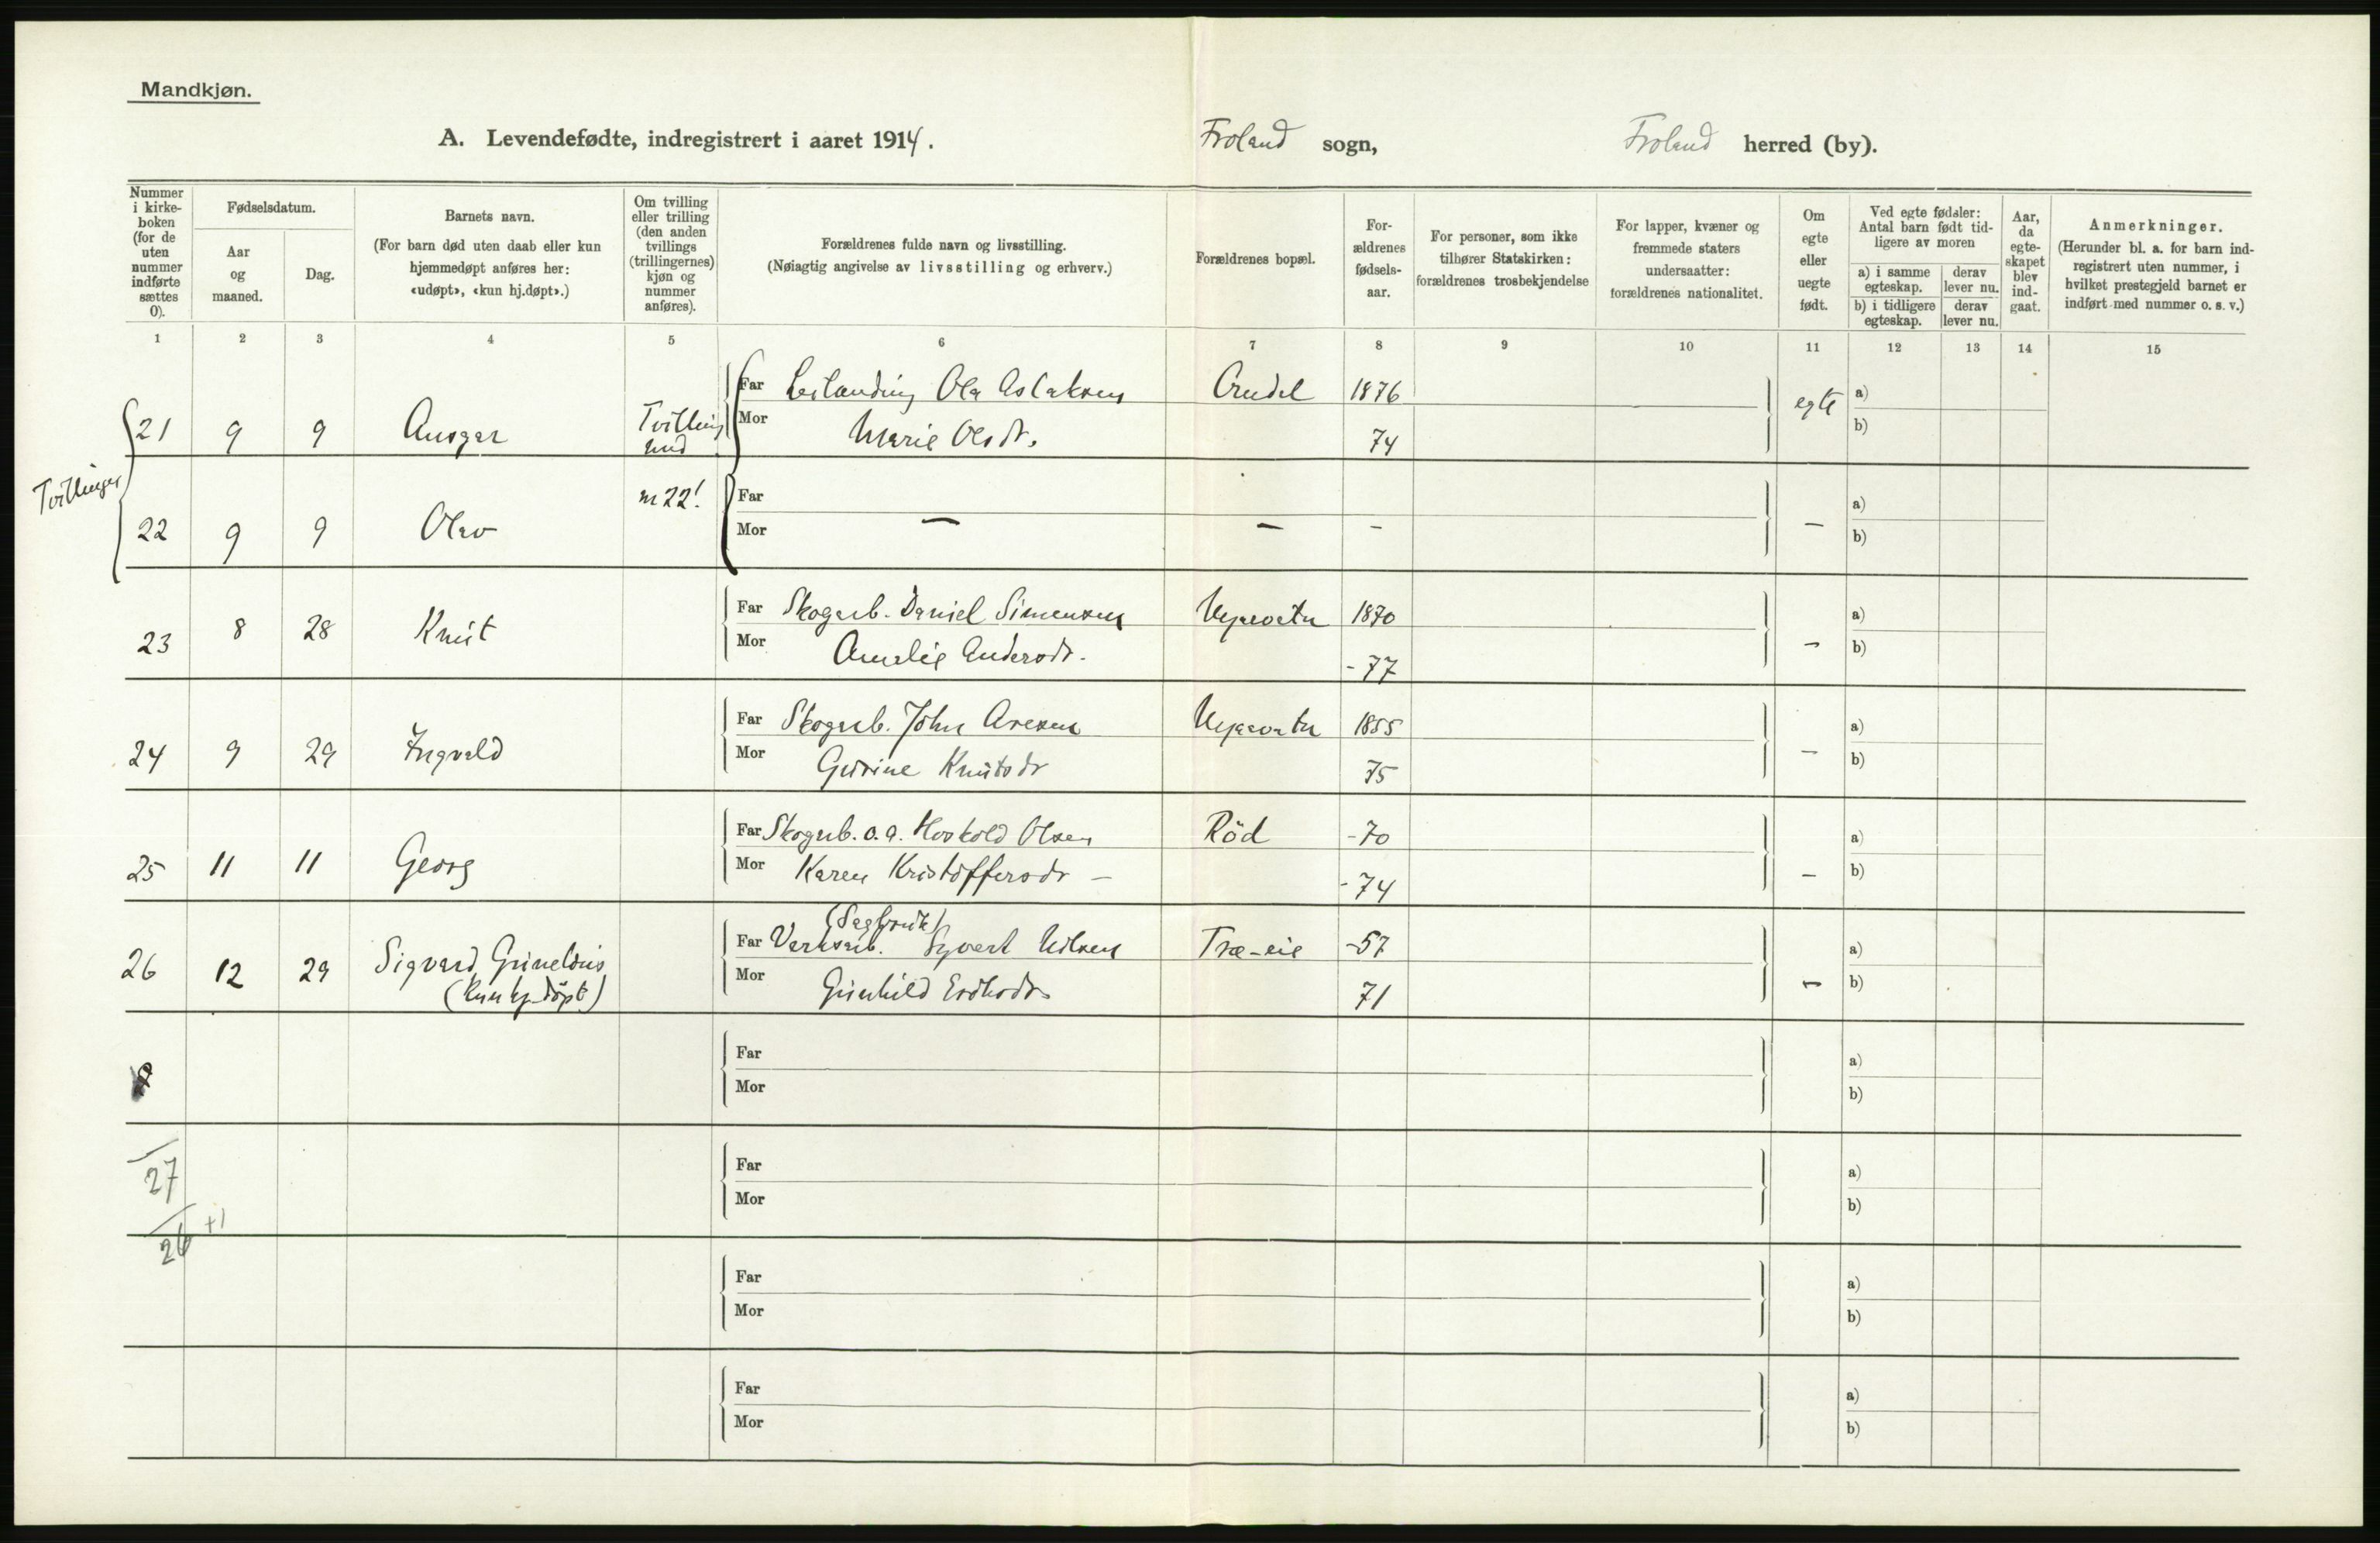 Mandkjøn.
A. Levendefødte, indregistrert i aaret 1914. Froland sogn, Froland herred (by).
Nummer i kirke- boken (for de uten nummer indførte sættes 0).
Fødselsdatum.
Aar og maaned.
Dag.
Barnets navn.
(For barn død uten daab eller kun hjemmedøpt anføres her: «udøpt», «kun hj.døpt».)
Om tvilling eller trilling (den anden tvillings (trillingernes) kjøn og nummer anføres).
Forældrenes fulde navn og livsstilling.
(Nøiagtig angivelse av livsstilling og erhverv.)
Forældrenes bopæl.
For- ældrenes fødsels- aar.
For personer, som ikke tilhører Statskirken: forældrenes trosbekjendelse
For lapper, kvæner og fremmede staters undersaatter: forældrenes nationalitet.
Om egte eller uegte født.
Ved egte fødsler: Antal barn født tid- ligere av moren
a) i samme egteskap.
derav lever nu.
b) i tidligere egteskap.
derav lever nu.
Aar, da egte- skapet blev ind- gaat.
Anmerkninger.
(Herunder bl. a. for barn ind- registrert uten nummer, i hvilket prestegjeld barnet er indført med nummer o. s. v.)
1 2 3 4 5 6 7 8 9 10 11 12 13 14 15
Tvillinger
Far Ola Aslaksen 1876 egte a)
21 9 9 Ansgar Tvilling
Mor Marie Olsdr. 74 b)
Far a)
22 9 9 Olav 22!
Mor — — - — b)
Far Skogarb. Daniel Simensen 1870 a)
23 8 28 Knut
Mor Amalie Andersdr. -77 - b)
Far Skogarb. John 1855 a)
24 9 29 Ingvald
Mor Gurine Knutsdr 75 — b)
Far Skogarb. o.a. Olsen Röd -70 a)
25 11 11 Georg
Mor Karen Kristoffersdr — -74 — b)
(Sagbruk)
Far Verksarb. Syvert Nilsen Træ-eie -57 a)
26 12 29 Sigvard
(kun hj.döpt)
Mor Gunhild 71 - b)
Far a)
Mor b)
27
Far a)
Mor b)
26 +1
Far a)
Mor b)
Far a)
Mor b)